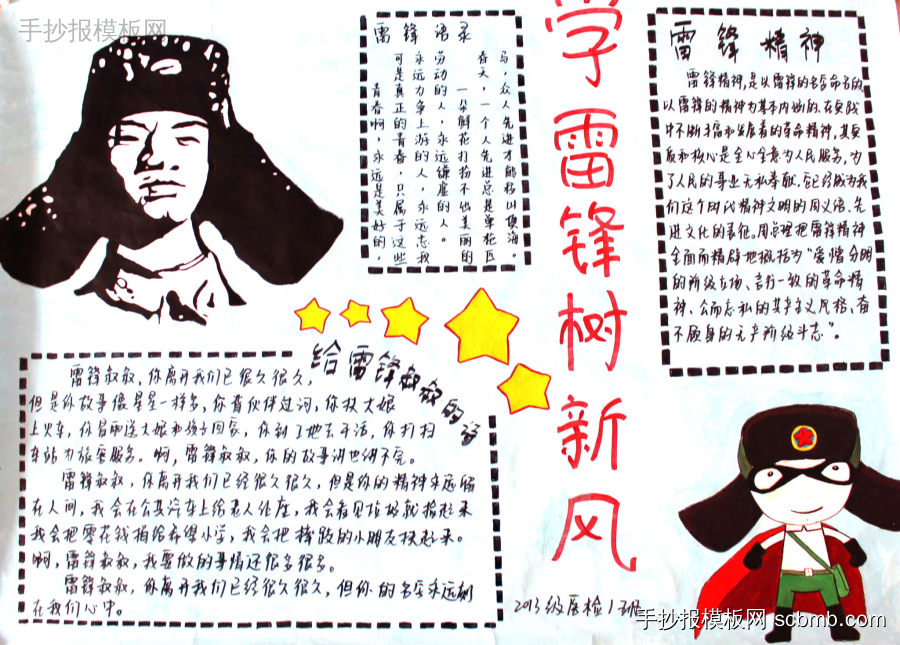 手抄报模板网
学雷锋树新风
雷锋语录
青春啊，永远是美好的，
可是真正的青春，只属于这些
永远力争上游的人，永远忘我
劳动的人，永远谦虚的人。
一朵鲜花打扮不出美丽的
春天，一个人先进总是单枪匹
马，众人先进才能移山填海。
雷锋精神
雷锋精神，是以雷锋的名字命名的，
以雷锋的精神为基本内涵的、在实践
中不断丰富和发展着的革命精神，其实
质和核心是全心全意为人民服务，为
了人民的事业无私奉献。它已经成为我
们这个时代精神文明的同义语、先
进文化的表征。周总理把雷锋精神
全面而精辟地概括为“爱憎分明
的阶级立场、言行一致的革命精
神、公而忘私的共产主义风格、奋
不顾身的无产阶级斗志”。
给雷锋叔叔的话
雷锋叔叔，你离开我们已很久很久，
但是你故事像星星一样多，你背伙伴过河，你扶大娘
上火车，你冒雨送大娘和孩子回家，你到工地去干活，你打扫
车站为旅客服务。啊，雷锋叔叔，你的故事讲也讲不完。
雷锋叔叔，你离开我们已经很久很久，但是你的精神永远留
在人间，我会在公共汽车上给老人让座，我会看见垃圾就捡起来
我会把零花钱捐给希望小学，我会把摔跤的小朋友扶起来。
啊，雷锋叔叔，我要做的事情还很多很多。
雷锋叔叔，你离开我们已经很久很久，但你的名字永远刻
在我们心中。
2013级医检1班
手抄报模板网 scbmb.com